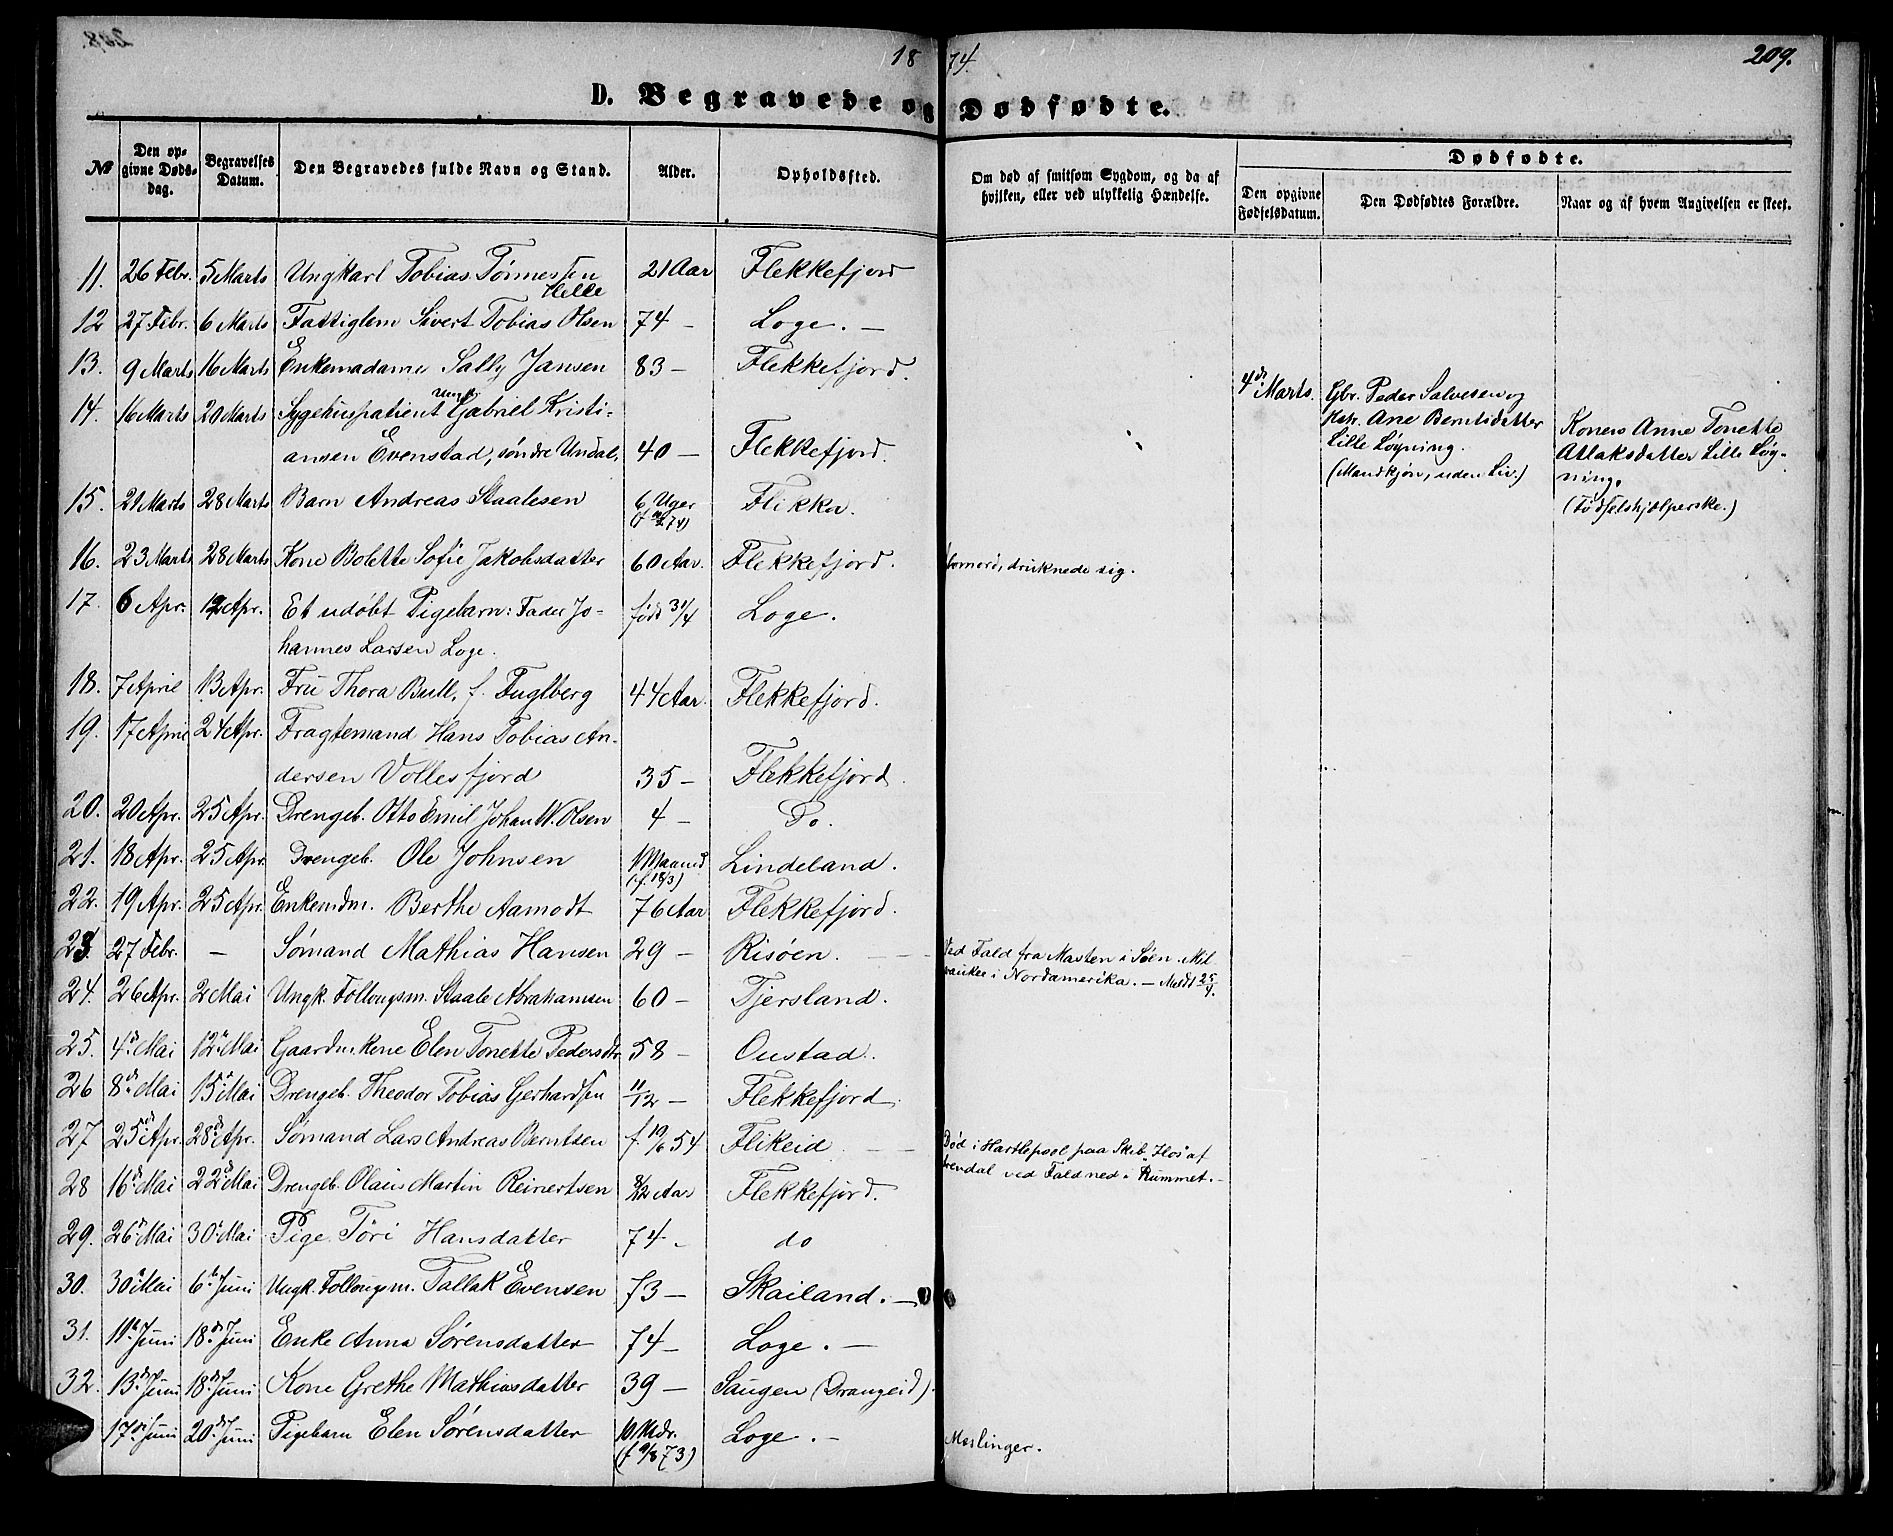 1874. 209.
D. Begravede og Dødfødte.
№ Den opgivne Dødsdag. Begravelses Datum. Den Begravedes fulde Navn og Stand. Alder. Opholdssted. Om død af smitsom Sygdom, og da af hvilken, eller ved ulykkelig Hændelse. Dødfødte. Den opgivne Fødselsdatum. Den Dødfødtes Forældre. Naar og af hvem Angivelsen er skeet.
11. 26 Febr. 5 Marts Ungkarl Tobias Tønnessen Helle 21 Aar Flekkefjord
12 27 Febr. 6 Marts Fattiglem Sivert Tobias Olsen 74 – Loge. –
13. 9 Marts 16 Marts Enkemadame Sally Jansen 83 – Flekkefjord.
14. 16 Marts 20 Marts Sygehuspatient Ungk. Gabriel Kristi-
ansen Evenstad, søndre Undal, 40 – Flekkefjord.
4de Marts. Gbr. Peder Salvesen og
Hstr. Ane Berntsdatter
Lille Løgning.
(Mandkjøn, uden Liv.)
Konen Anne Tonette
Atlaksdatter Lille Løg-
ning.
(Fødselshjælperske.)
15. 21 Marts 28 Marts Barn Andreas Staalesen 6 Uger Flikka.
16. 23 Marts 28 Marts Kone Bolette Sofie Jakobsdatter 60 Aar. Flekkefjord. druknede sig.
17. 6 Apr. 12 Apr. Et udøbt Pigebarn: Fader Jo-
hannes Larsen Loge. født 31/4 Loge.
18. 7 April 13 Apr. Fru Thora Bull, f. Fuglberg 44 Aar. Flekkefjord.
19. 17 April 24 Apr. Fragtemand Hans Tobias An-
dersen Vollesfjord 35 – Flekkefjord.
20. 20 Apr. 25 Apr. Drengeb. Otto Emil Johan W. Olsen 4 – Do.
21. 18 Apr. 25 Apr. Drengeb. Ole Johnsen 1 Maaned (f. 18/3) Lindeland.
22. 19 Apr. 25 Apr. Enkemdm. Berthe Aamodt 76 Aar Flekkefjord.
23. 27 Febr. – Sømand Mathias Hansen 29 – Risøen. – – Ved Fald fra Masten i Søen. Mil
vaukee i Nordamerika. – Meldt 25/4.
24. 26 Apr. 2 Mai Ungk. Follougsm. Staale Abrahamsen 60 – Tjersland.
25. 4de Mai 12te Mai Gaardm.kone Elen Tonette Pedersdtr 58 – Oustad.
26 8de Mai 15te Mai Drengeb. Theodor Tobias Gerhardsen 11/12 – Flekkefjord.
27 25de Apr. 28de Apr. Sømand Lars Andreas Berntsen f. 19/6 54 Flikeid. – – Død i Hartlepool paa Skib "Flos" af
rendal ved Fald ned i Rummet. –
28 16de Mai 22de Mai Drengeb. Olaus Martin Reinertsen 8/12 Aar Flekkefjord.
29. 26de Mai 30te Mai Pige Töri Hansdatter 74 – do
30. 30te Mai 6te Juni Ungk. Follougsm. Tallak Evensen 73 – Skailand. –
31. 11te Juni 18de Juni Enke Anna Sørensdatter 74 – Loge. –
32. 13de Juni 18de Juni Kone Grethe Mathiasdatter 39 – Saugen (Drangeid).
17de Juni 20de Juni Pigebarn Elen Sørensdatter 10 Mdr. (f 9/8 73) Loge. – Meslinger.